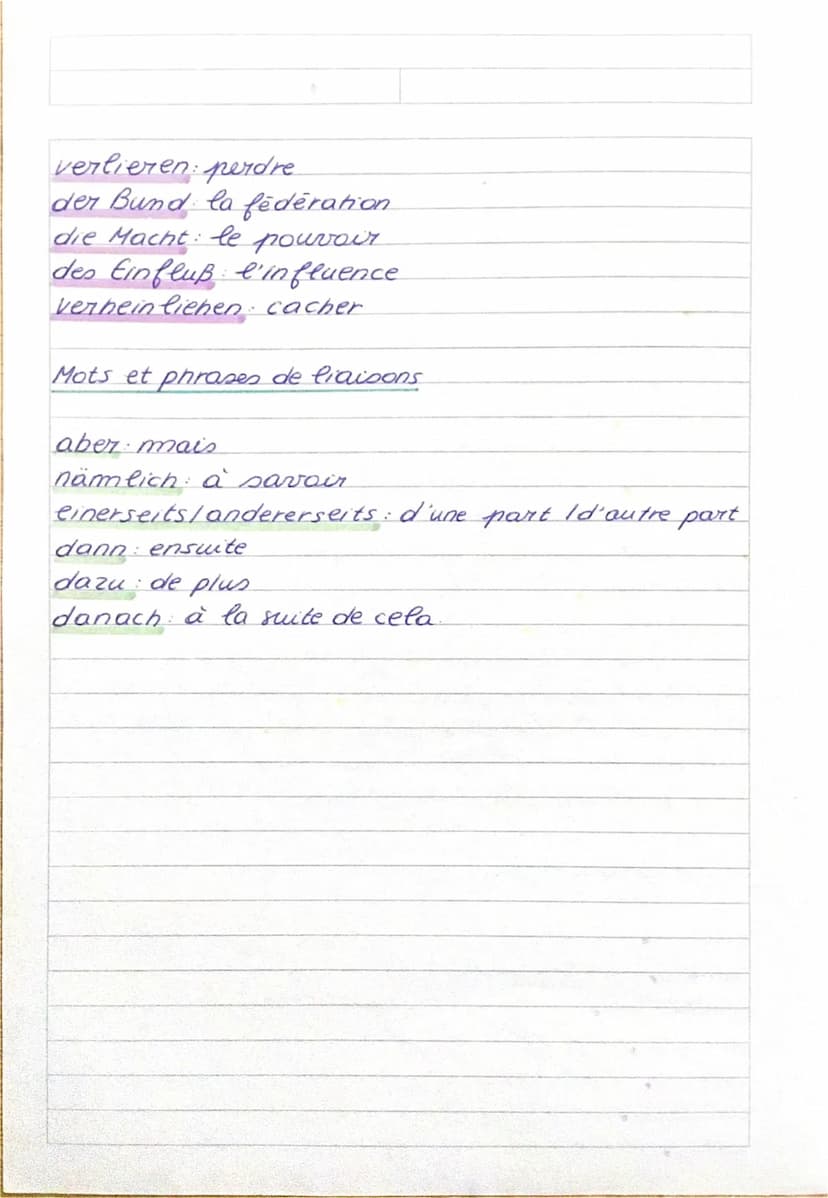 verlieren: perdre
der Bund: la fédération
die Macht: le pouvoir
des Einfluß: l'influence
verheinliehen: cacher
Mots et phrases de liaisons
aber: mais
nämlich: à savoir
einerseits/andererseits: d'une part /d'autre part
dann: ensuite
dazu: de plus
danach: à la suite de cela.